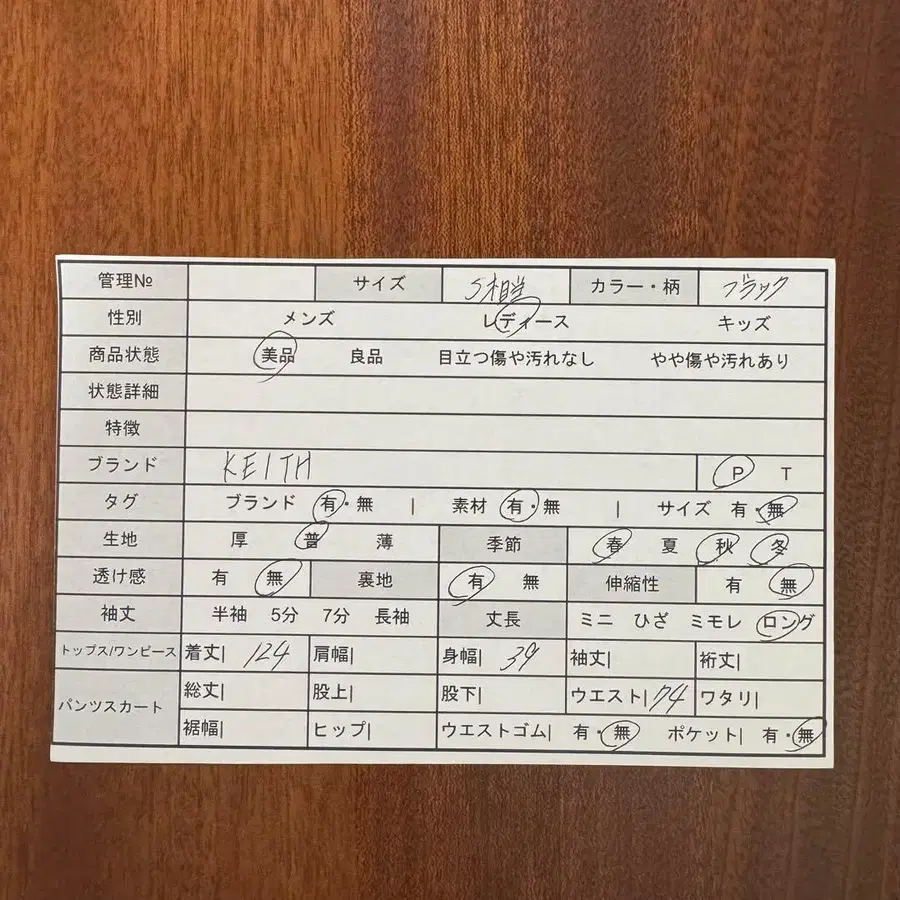 管理№ サイズ S相当 カラー・柄 ブラック
性別 メンズ レディース キッズ
商品状態 美品 良品 目立つ傷や汚れなし やや傷や汚れあり
状態詳細
特徴
ブランド KEITH P T
タグ ブランド 有・無 | 素材 有・無 | サイズ 有・無
生地 厚 普 薄 季節 春 夏 秋 冬
透け感 有 無 裏地 有 無 伸縮性 有 無
袖丈 半袖 5分 7分 長袖 丈長 ミニ ひざ ミモレ ロング
トップス/ワンピース 着丈| 124 肩幅| 身幅| 39 袖丈| 裄丈|
パンツスカート 総丈| 股上| 股下| ウエスト| 74 ワタリ|
裾幅| ヒップ| ウエストゴム| 有・無 ポケット| 有・無